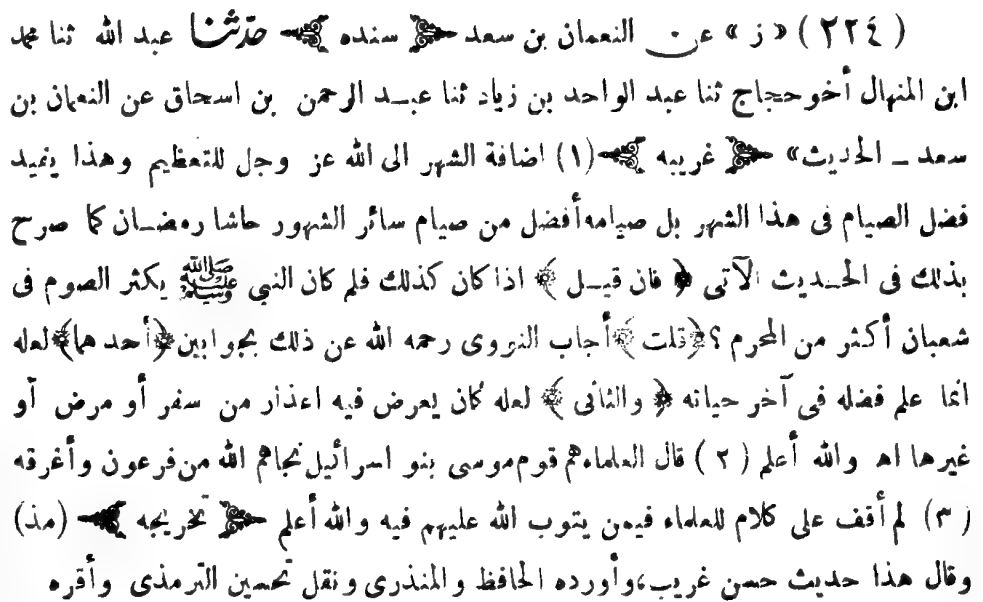 (٢٢٤) «ز» عن النعمان بن سعد ﴿ سنده ﴾ حدّثنا عبد الله ثنا محمد
ابن المنهال أخو حجاج ثنا عبد الواحد بن زياد ثنا عبد الرحمن بن اسحاق عن النعمان بن
سعد ــ الحديث» ﴿ غريبه ﴾ (١) اضافة الشهر الى الله عز وجل للتعظيم وهذا يفيد
فضل الصيام فى هذا الشهر بل صيامه أفضل من صيام سائر الشهور حاشا رمضان كما صرح
بذلك فى الحديث الآتى ﴿ فان قيل ﴾ اذا كان كذلك فلم كان النبي ﷺ يكثر الصوم فى
شعبان أكثر من المحرم ؟ ﴿ قلت ﴾ أجاب النووى رحمه الله عن ذلك بجوابين ﴿ أحدهما ﴾ لعله
انما علم فضله فى آخر حياته ﴿ والثانى ﴾ لعله كان يعرض فيه اعذار من سفر أو مرض أو
غيرها اه والله أعلم (٢) قال العلماء هم قوم موسى بنو اسرائيل نجاهم الله من فرعون وأغرقه
(٣) لم أقف على كلام للعلماء فيمن يتوب الله عليهم فيه والله أعلم ﴿ تخريجه ﴾ (مذ)
وقال هذا حديث حسن غريب، وأورده الحافظ والمنذرى ونقل تحسين الترمذى وأقره